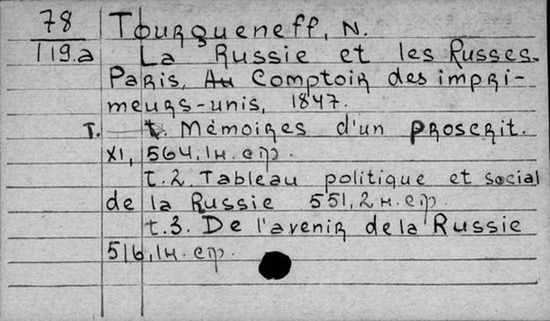 78
119.a
Tourgueneff, N.
La Russie et les Russes.
Paris, Au Comptoir des impri-
meurs-unis, 1847.
T. t. Mémoires d'un proscrit.
XI, 564, 1 н. стр.
t. 2. Tableau politique et social
de la Russie 551, 2 н. стр.
t. 3. De l'avenir de la Russie
516, 1 н. стр.